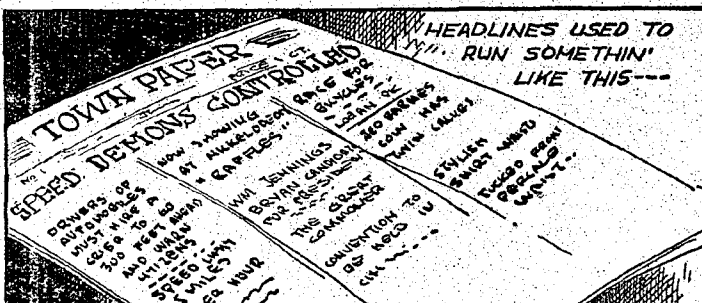 HEADLINES USED TO
RUN SOMETHIN'
LIKE THIS---
TOWN PAPER
PRICE 1 CT.
No 1
SPEED DEMONS CONTROLLED
DRIVERS OF
AUTOMOBILES
MUST HIRE A
CRIER TO GO
300 FEET AHEAD
AND WARN
CITIZENS
SPEED LIMIT
5 MILES
PER HOUR
NOW SHOWING
AT NIKKALODEON
"RAFFLES"
WM JENNINGS
BRYAN CANDIDATE
FOR PRESIDENT
THE GREAT
COMMONER
CONVENTION TO
BE HELD IN
RACE FOR
BICYCLES
LOGAN PK
REO BARNES
COW HAS
TWIN CALVES
STYLISH
SHIRT WAIST
TUCKED FRONT
PERCALE